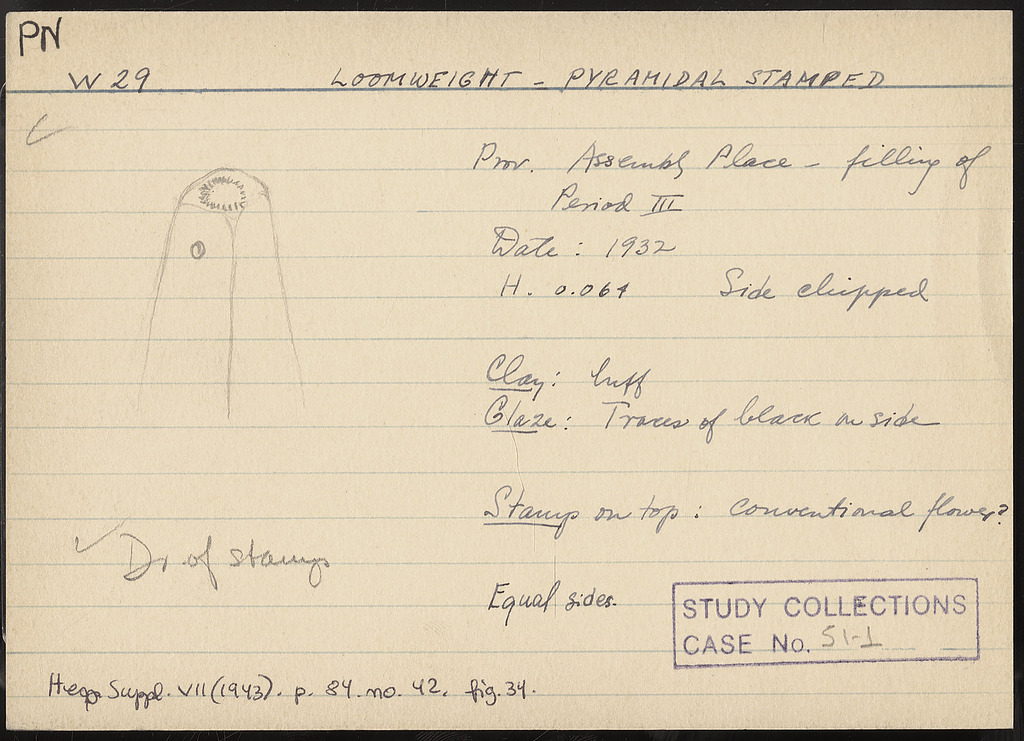 PN
W 29 LOOMWEIGHT - PYRAMIDAL STAMPED
Prov. Assembly Place - filling of
Period III
Date : 1932
H. 0.064 Side chipped
Clay: buff
Glaze: Traces of black on side
Stamp on top : Conventional flower?
Dr. of stamps
Equal sides.
STUDY COLLECTIONS
CASE No. 51-1
Hesp. Suppl. VII (1943). p. 84. no. 42. fig. 34.